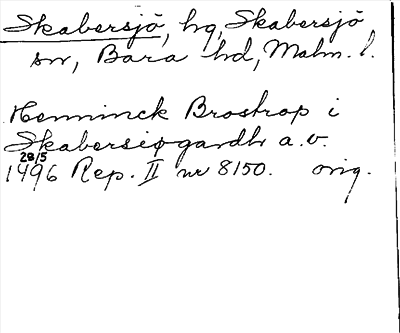 Skabersjö, hg, Skabersjö
sn, Bara hd, Malm. l.
Henninck Brostrop i
Skabersiøgardh a.v.
28/5
1496 Rep. II nr 8150. orig.